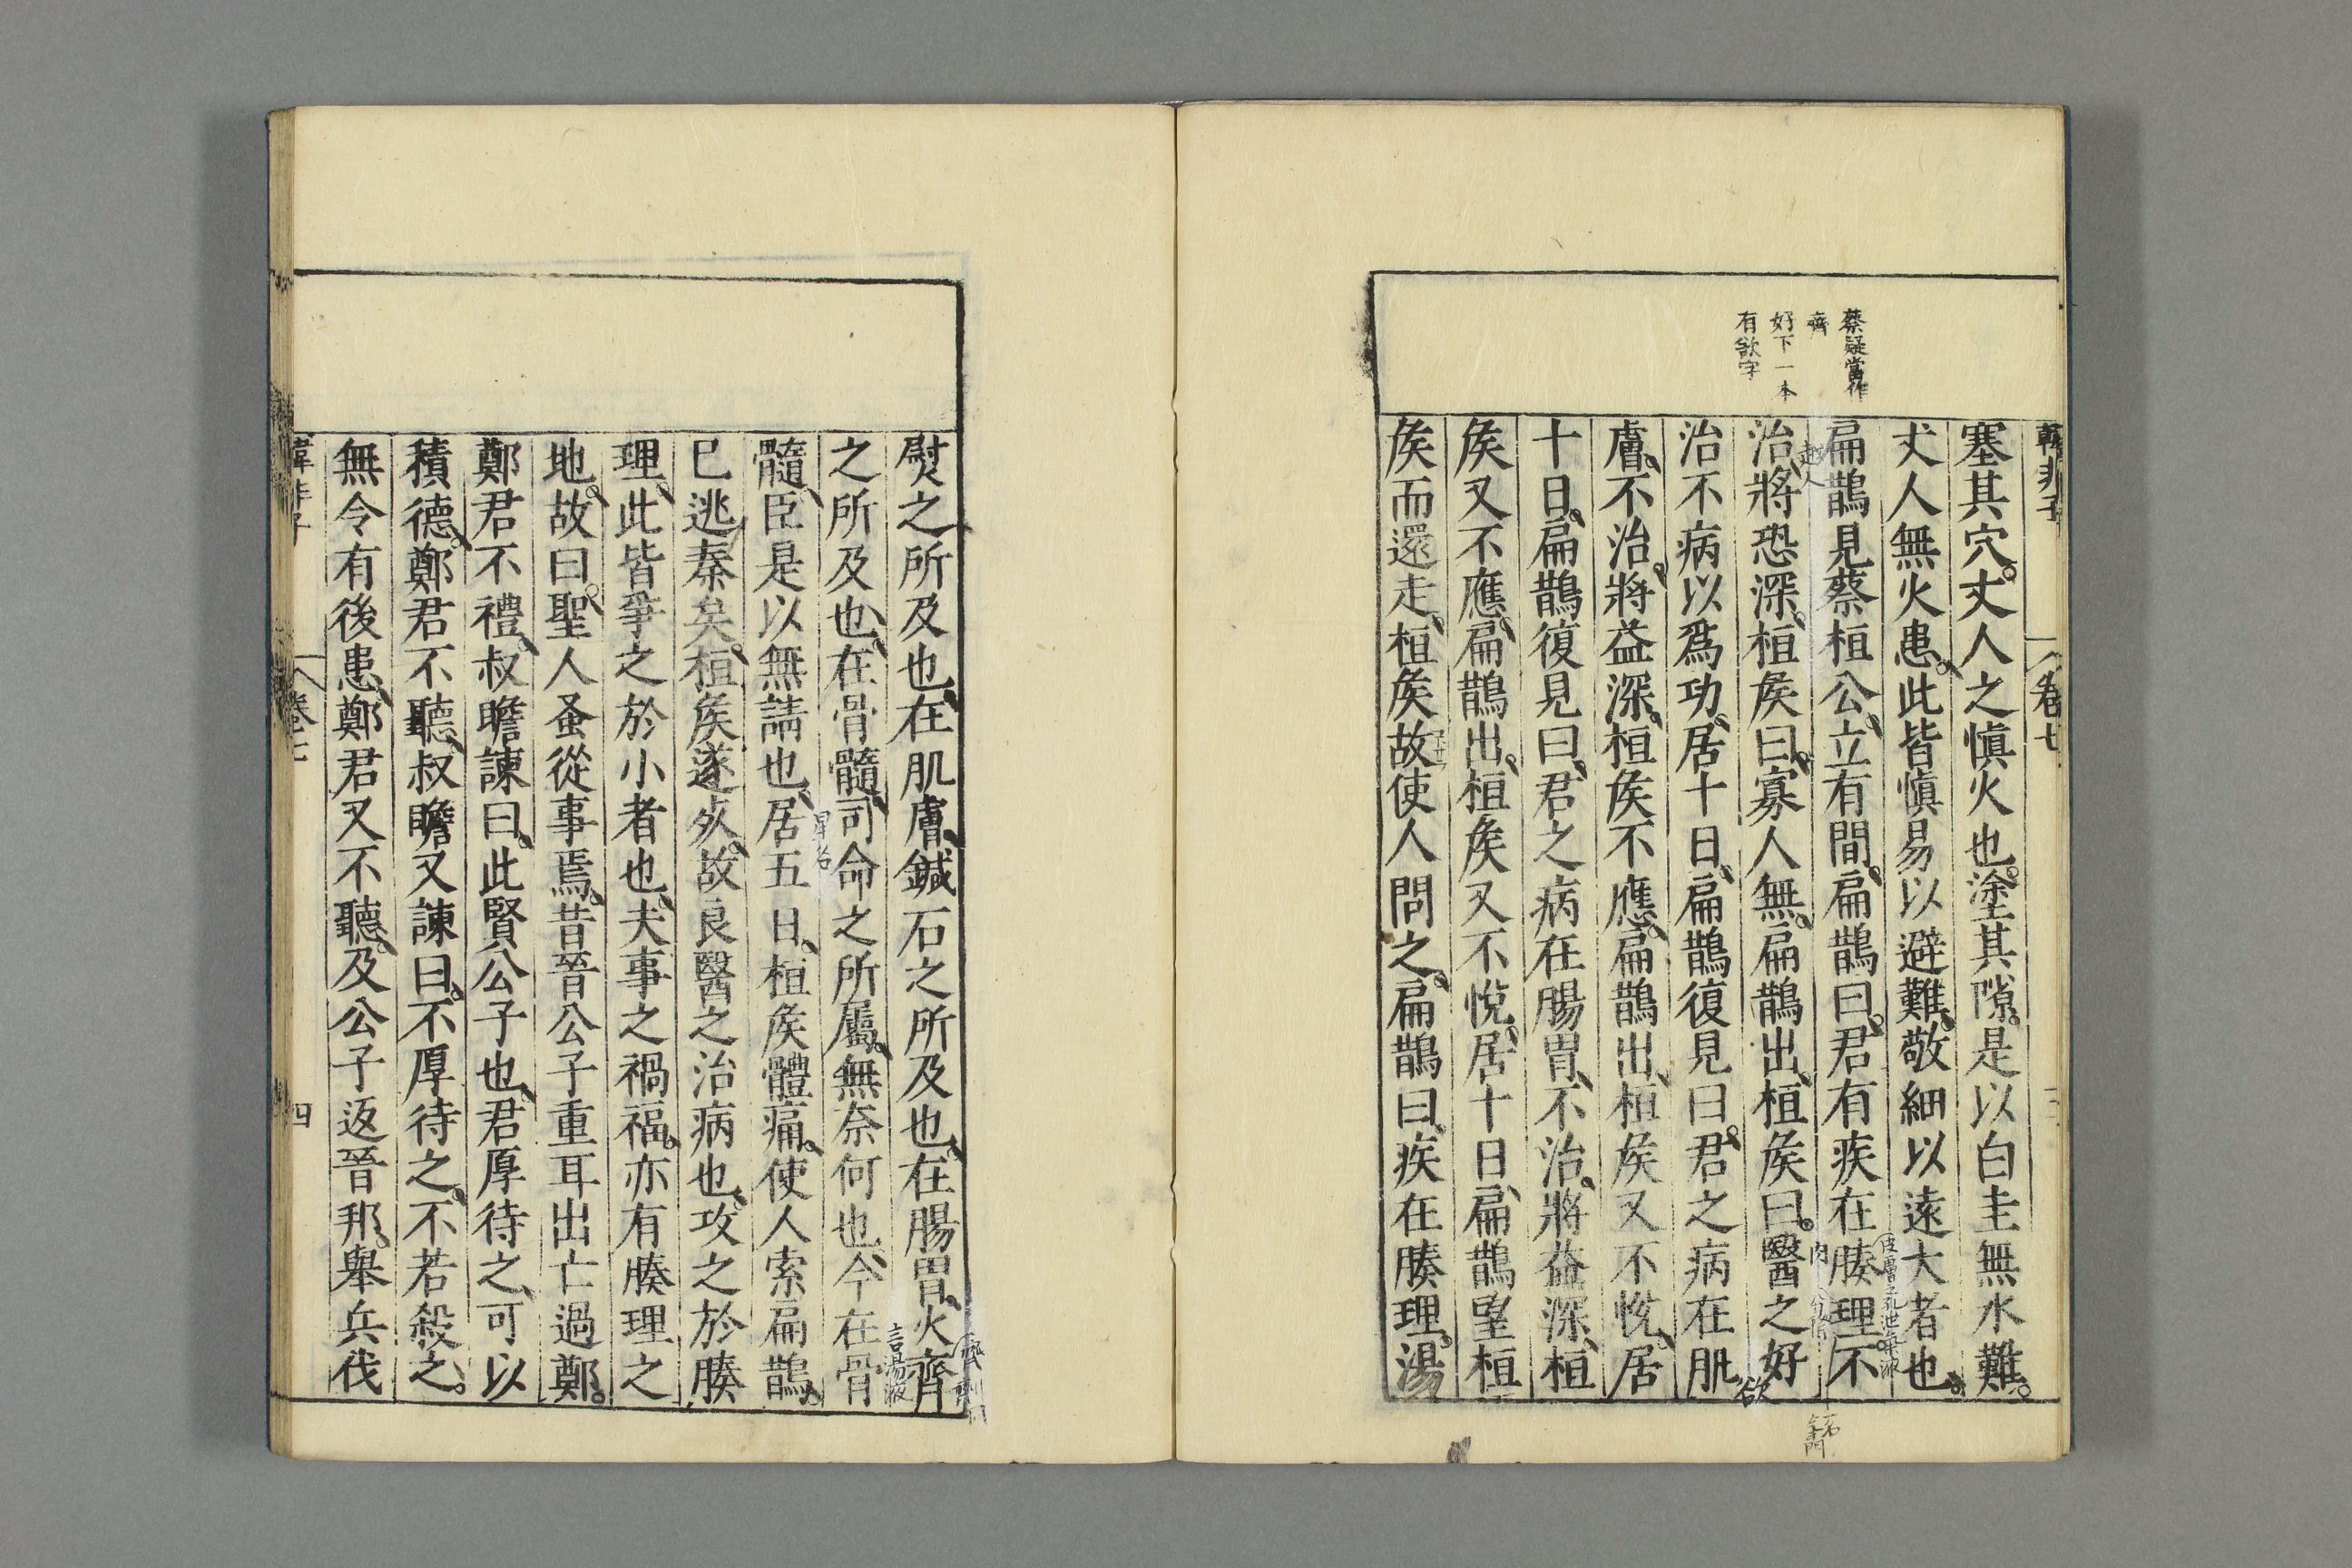 韓非子 卷七
蔡疑當作
齊
好下一本
有欲字
塞其穴。丈人之愼火也。塗其隙。是以白圭無水難。
丈人無火患。此皆愼易以避難、敬細以遠大者也。
扁鵲見蔡桓公、立有間。扁鵲曰。君有疾在腠理。不
越人
治、將恐深。桓矦曰。寡人無。扁鵲出。桓矦曰。醫之好
欲
治不病以爲功。居十日、扁鵲復見曰。君之病在肌
膚。不治。將益深、桓矦不應、扁鵲出、桓矦又不悅、居
十日。扁鵲復見曰。君之病在腸胃、不治、將益深、桓
矦又不應。扁鵲出。桓矦又不悅、居十日、扁鵲望桓
矦而還走、桓矦故使人問之。扁鵲曰。疾在腠理。湯
熨之所及也、在肌膚、鍼石之所及也、在腸胃、火齊
言湯液
之所及也、在骨髓、司命之所屬、無奈何也、今在骨
星名
髓、臣是以無請也、居五日、桓矦體痛。使人索扁鵲。
巳逃秦矣。桓矦遂死。故良醫之治病也、攻之於腠
理。此皆爭之於小者也、夫事之禍福。亦有腠理之
地。故曰。聖人蚤從事焉。昔晉公子重耳出亡過鄭。
鄭君不禮、叔瞻諫曰、此賢公子也、君厚待之、可以
積德。鄭君不聽、叔瞻又諫曰。不厚待之。不若殺之。
無令有後患、鄭君又不聽、及公子返晉邦。舉兵伐
韓非子 卷七 四